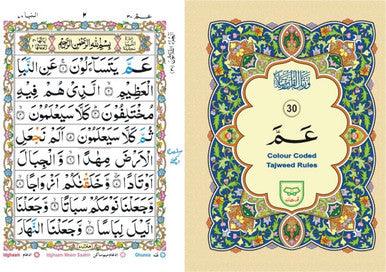 عَمَّ ٣٠
٢
النبا ٧٨
بِسْمِ اللهِ الرَّحْمٰنِ الرَّحِيْمِ
عَمَّ يَتَسَآءَلُوْنَ ۝ عَنِ النَّبَاِ
الْعَظِيْمِ ۝ الَّذِيْ هُمْ فِيْهِ
مُخْتَلِفُوْنَ ۝ كَلَّا سَيَعْلَمُوْنَ ۝
ثُمَّ كَلَّا سَيَعْلَمُوْنَ ۝ اَلَمْ نَجْعَلِ
الْاَرْضَ مِهٰدًا ۝ وَّالْجِبَالَ
اَوْتَادًا ۝ وَّخَلَقْنٰكُمْ اَزْوَاجًا ۝
وَّجَعَلْنَا نَوْمَكُمْ سُبَاتًا ۝ وَّجَعَلْنَا
الَّيْلَ لِبَاسًا ۝ وَّجَعَلْنَا النَّهَارَ
Idgham
Idghaam Meem Saakin
Ghunna
30
عَمَّ
Colour Coded
Tajweed Rules